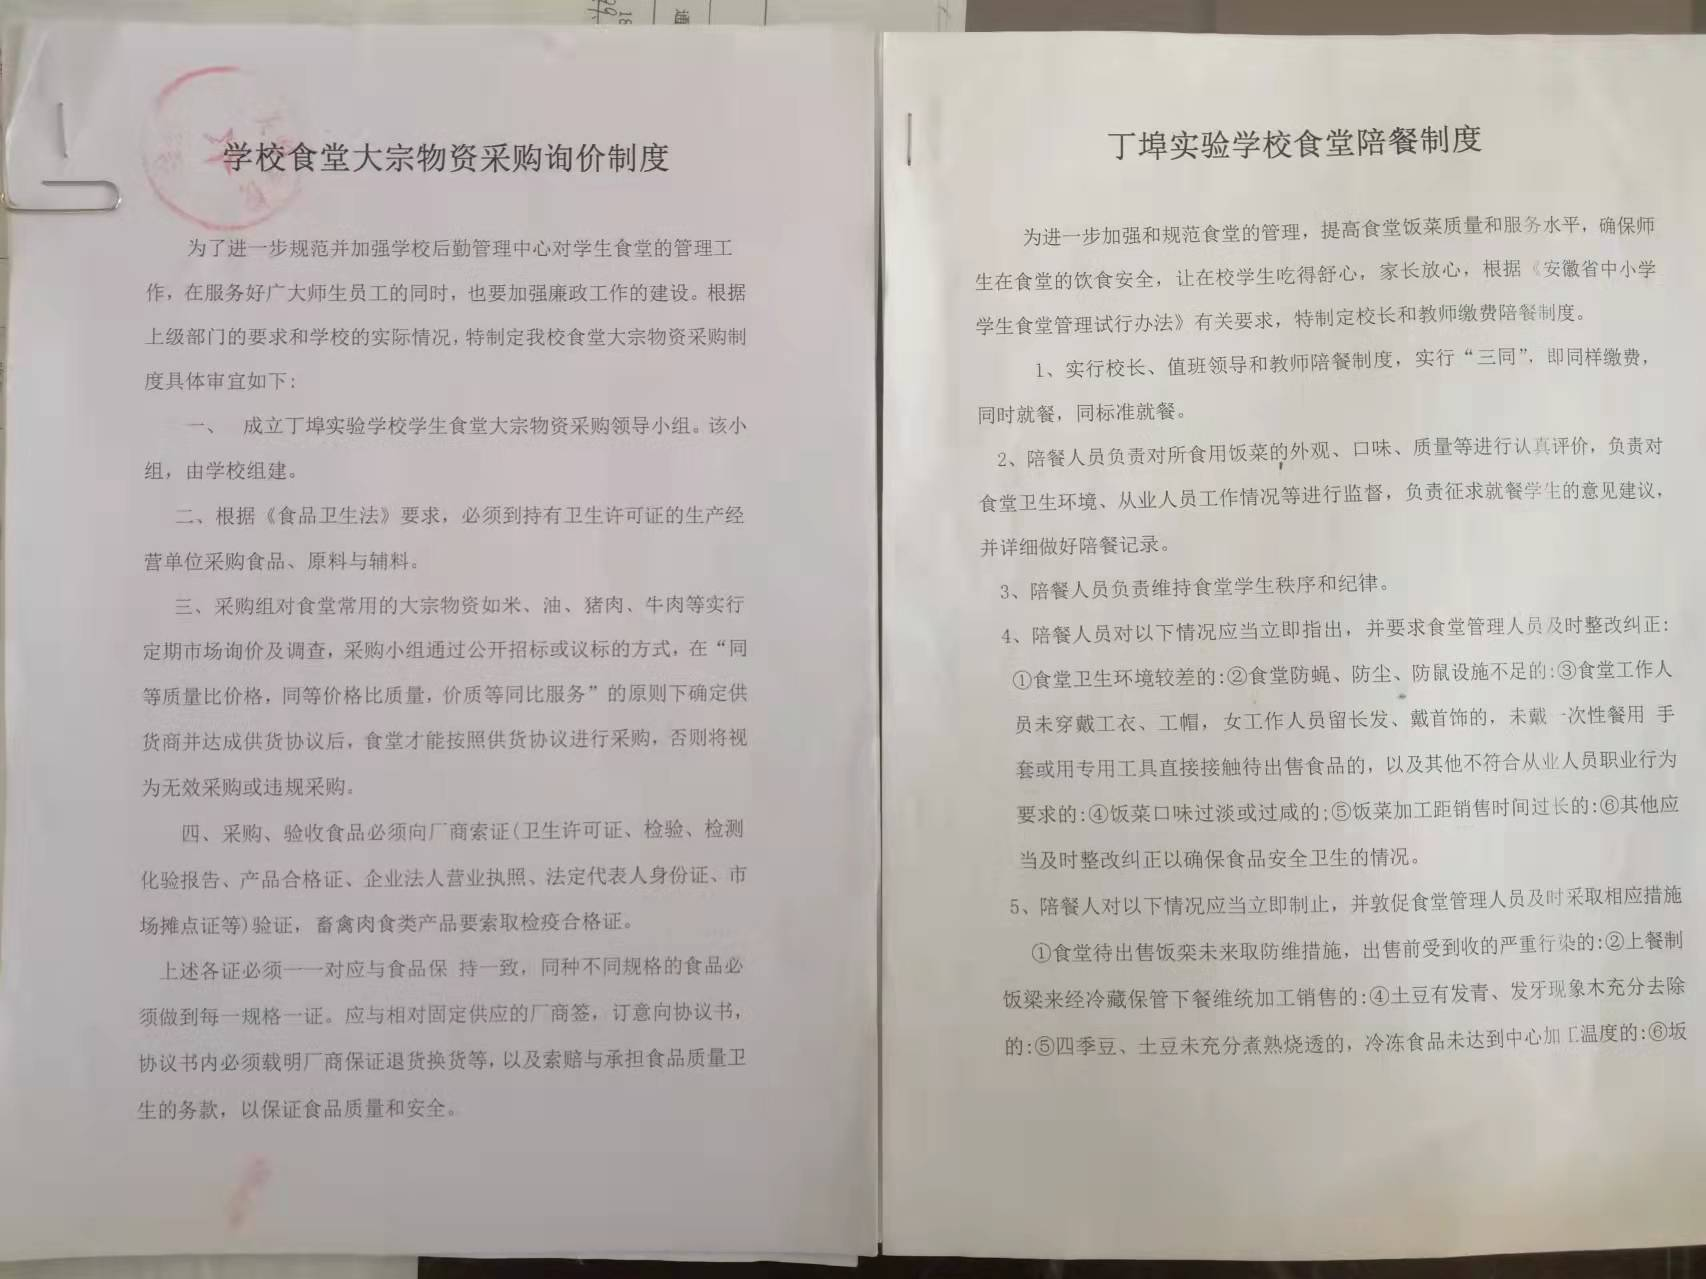 学校食堂大宗物资采购询价制度
为了进一步规范并加强学校后勤管理中心对学生食堂的管理工
作，在服务好广大师生员工的同时，也要加强廉政工作的建设。根据
上级部门的要求和学校的实际情况，特制定我校食堂大宗物资采购制
度具体审宜如下：
一、 成立丁埠实验学校学生食堂大宗物资采购领导小组。该小
组，由学校组建。
二、根据《食品卫生法》要求，必须到持有卫生许可证的生产经
营单位采购食品、原料与辅料。
三、采购组对食堂常用的大宗物资如米、油、猪肉、牛肉等实行
定期市场询价及调查，采购小组通过公开招标或议标的方式，在“同
等质量比价格，同等价格比质量，价质等同比服务”的原则下确定供
货商并达成供货协议后，食堂才能按照供货协议进行采购，否则将视
为无效采购或违规采购。
四、采购、验收食品必须向厂商索证(卫生许可证、检验、检测
化验报告、产品合格证、企业法人营业执照、法定代表人身份证、市
场摊点证等)验证，畜禽肉食类产品要索取检疫合格证。
上述各证必须一一对应与食品保 持一致，同种不同规格的食品必
须做到每一规格一证。应与相对固定供应的厂商签，订意向协议书，
协议书内必须载明厂商保证退货换货等，以及索赔与承担食品质量卫
生的务款，以保证食品质量和安全。
丁埠实验学校食堂陪餐制度
为进一步加强和规范食堂的管理，提高食堂饭菜质量和服务水平，确保师
生在食堂的饮食安全，让在校学生吃得舒心，家长放心，根据《安徽省中小学
学生食堂管理试行办法》有关要求，特制定校长和教师缴费陪餐制度。
1、实行校长、值班领导和教师陪餐制度，实行“三同”，即同样缴费，
同时就餐，同标准就餐。
2、陪餐人员负责对所食用饭菜的外观、口味、质量等进行认真评价，负责对
食堂卫生环境、从业人员工作情况等进行监督，负责征求就餐学生的意见建议，
并详细做好陪餐记录。
3、陪餐人员负责维持食堂学生秩序和纪律。
4、陪餐人员对以下情况应当立即指出，并要求食堂管理人员及时整改纠正：
①食堂卫生环境较差的：②食堂防蝇、防尘、防鼠设施不足的：③食堂工作人
员未穿戴工衣、工帽，女工作人员留长发、戴首饰的，未戴 一次性餐用 手
套或用专用工具直接接触待出售食品的，以及其他不符合从业人员职业行为
要求的：④饭菜口味过淡或过咸的；⑤饭菜加工距销售时间过长的：⑥其他应
当及时整改纠正以确保食品安全卫生的情况。
5、陪餐人对以下情况应当立即制止，并敦促食堂管理人员及时采取相应措施
①食堂待出售饭栾未来取防维措施，出售前受到收的严重行染的：②上餐制
饭梁来经冷藏保管下餐维统加工销售的：④土豆有发青、发牙现象木充分去除
的：⑤四季豆、土豆未充分煮熟烧透的，冷冻食品未达到中心加工温度的：⑥坂